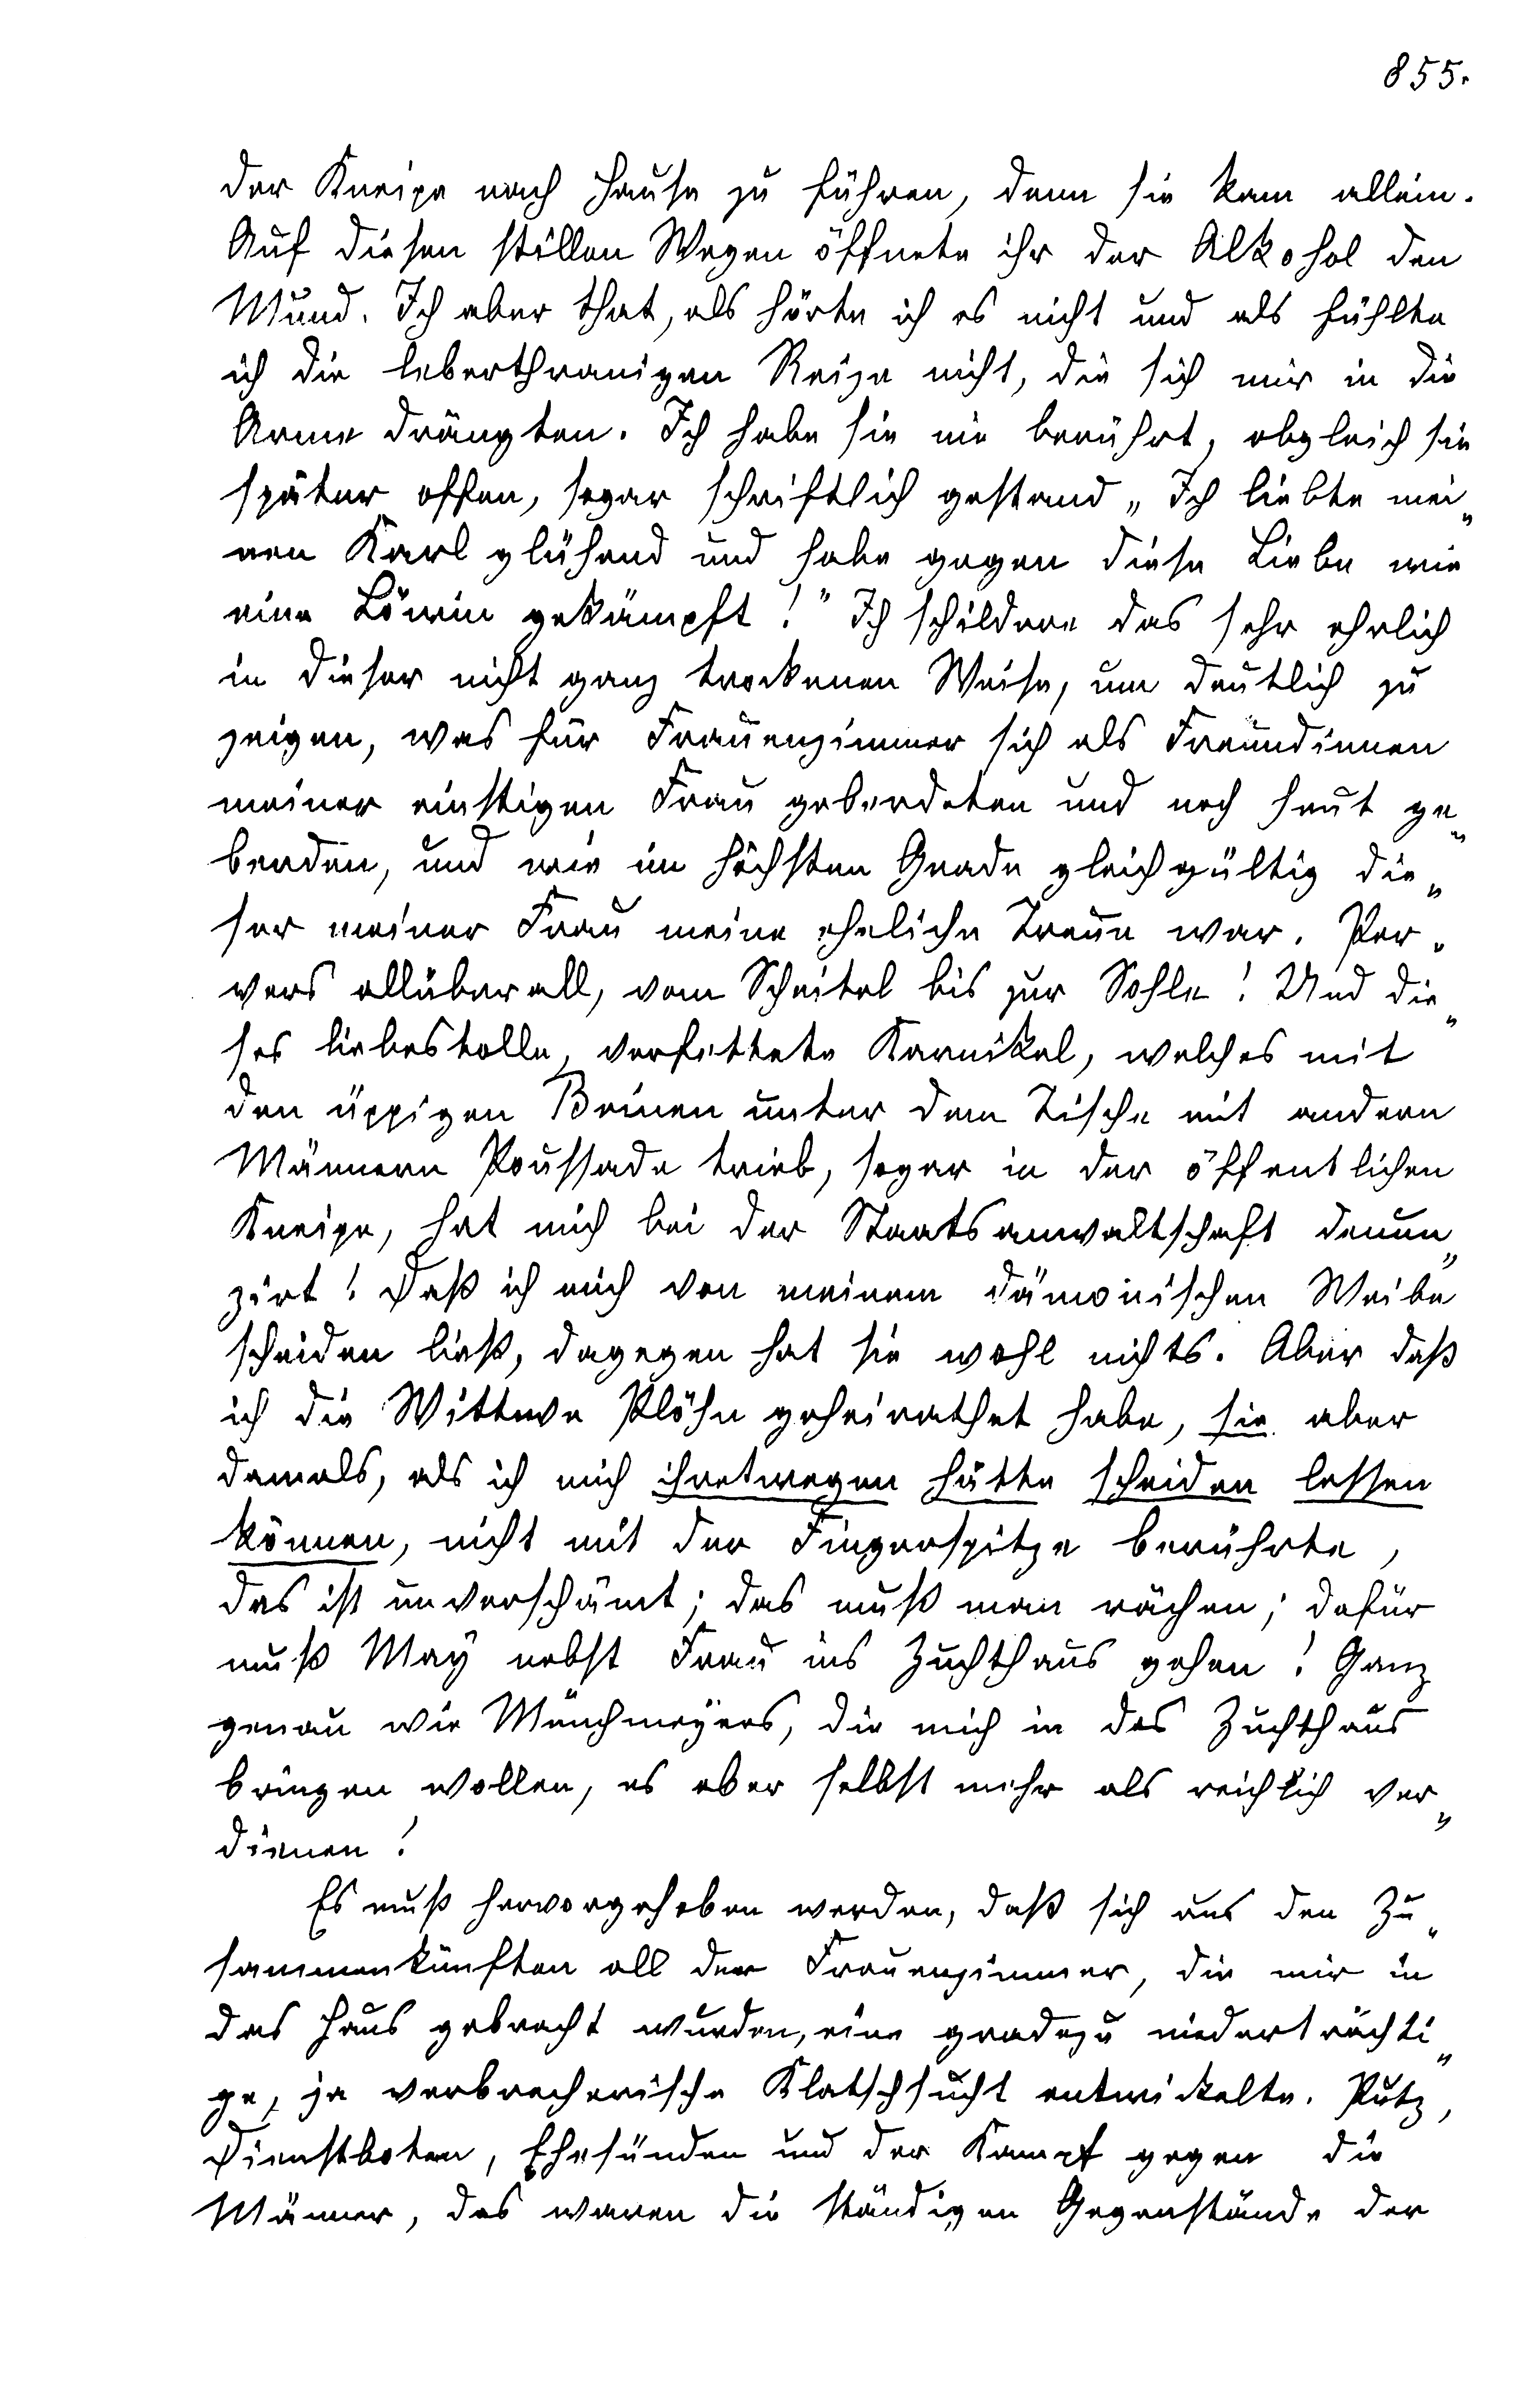 855.
der Kneipe nach Hause zu führen, denn sie kam allein.
Auf diesen stillen Wegen öffnete ihr der Alkohol den
Mund. Ich aber that, als hörte ich es nicht und als fühlte
ich die leberthranigen Reize nicht, die sich mir in die
Arme drängten. Ich habe sie nie berührt, obgleich sie
später offen, sogar schriftlich gestand „Ich liebte mei„
nen Karl glühend und habe gegen diese Liebe wie
eine Löwin gekämpft!" Ich schildere das sehr ehrlich
in dieser nicht ganz trockenen Weise, um deutlich zu
zeigen, was für Frauenzimmer sich als Freundinnen
meiner einstigen Frau geberdeten und noch heut ge„
berden, und wie im höchsten Grade gleichgültig die„
ser meiner Frau meine eheliche Treue war. Per„
vers allüberall, vom Scheitel bis zur Sohle! Und die„
ses liebestolle, verfettete Karnikel, welches mit
den üppigen Beinen unter dem Tische mit andern
Männern Poussade trieb, sogar in der öffentlichen
Kneipe, hat mich bei der Staatsanwaltschaft denun„
zirt! Daß ich mich von meinem dämonischen Weibe
scheiden ließ, dagegen hat sie wohl nichts. Aber daß
ich die Wittwe Plöhn geheirathet habe, sie aber
damals, als ich mich ihretwegen hätte scheiden lassen
können, nicht mit der Fingerspitze berührte,
das ist unverschämt; das muß man rächen; dafür
muß May nebst Frau ins Zuchthaus gehen! Ganz
genau wie Münchmeyers, die mich in das Zuchthaus
bringen wollen, es aber selbst mehr als reichlich ver„
dienen!
Es muß hervorgehoben werden, daß sich aus den Zu„
sammenkünften all der Frauenzimmer, die mir in
das Haus gebracht wurden, eine gradezu niederträchti„
ge, ja verbrecherische Klatschsucht entwickelte. Putz,
Dienstboten, Ehesünden und der Kampf gegen die
Männer, das waren die ständigen Gegenstände der